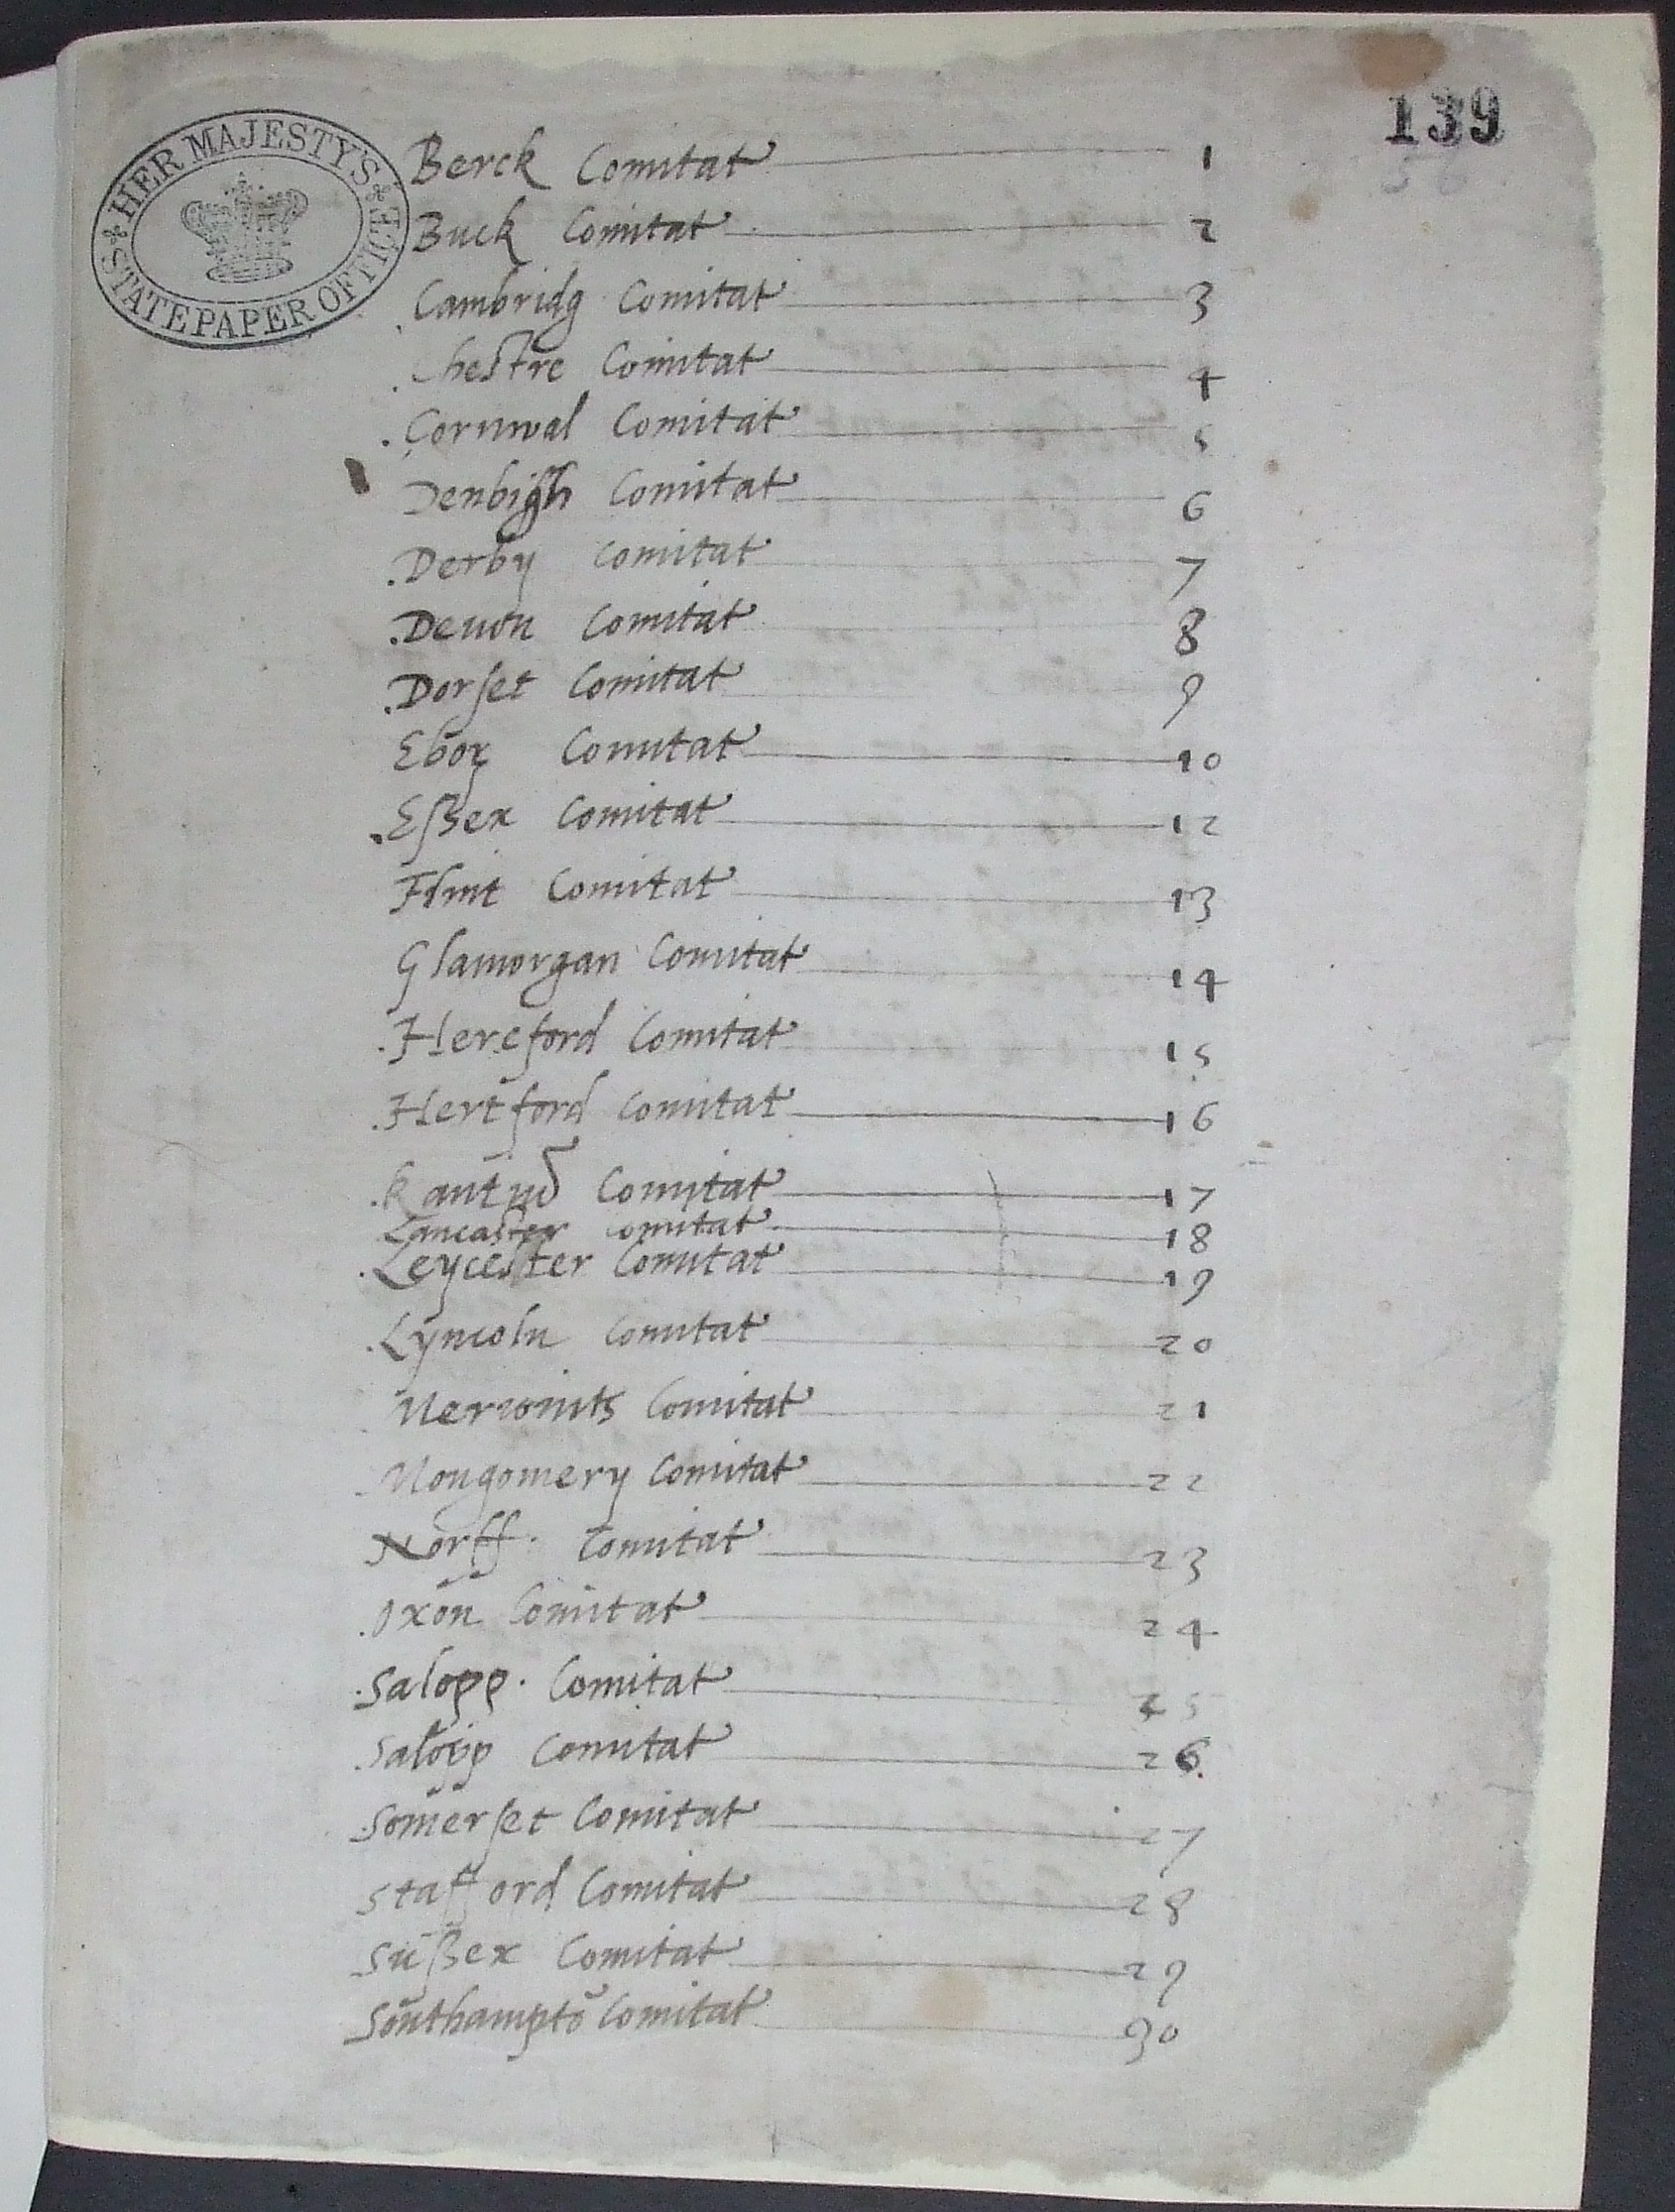 139
HER MAJESTY'S STATE PAPER OFFICE
Berck Comitat 1
Buck Comitat 2
Cambridg Comitat 3
Chestre Comitat 4
Cornwal Comitat 5
Denbigh Comitat 6
Derby Comitat 7
Deuon Comitat 8
Dorset Comitat 9
Ebor Comitat 10
Essex Comitat 12
Flint Comitat 13
Glamorgan Comitat 14
Hereford Comitat 15
Hertford Comitat 16
Comitat 17
Lancaster Comitat 18
Leycester Comitat 19
Lyncoln Comitat 20
Comitat 21
Mongomery Comitat 22
Norff. Comitat 23
Oxon Comitat 24
Salopp. Comitat 25
Salopp Comitat 26
Somerset Comitat 27
Stafford Comitat 28
Sussex Comitat 29
Southamptō Comitat 30